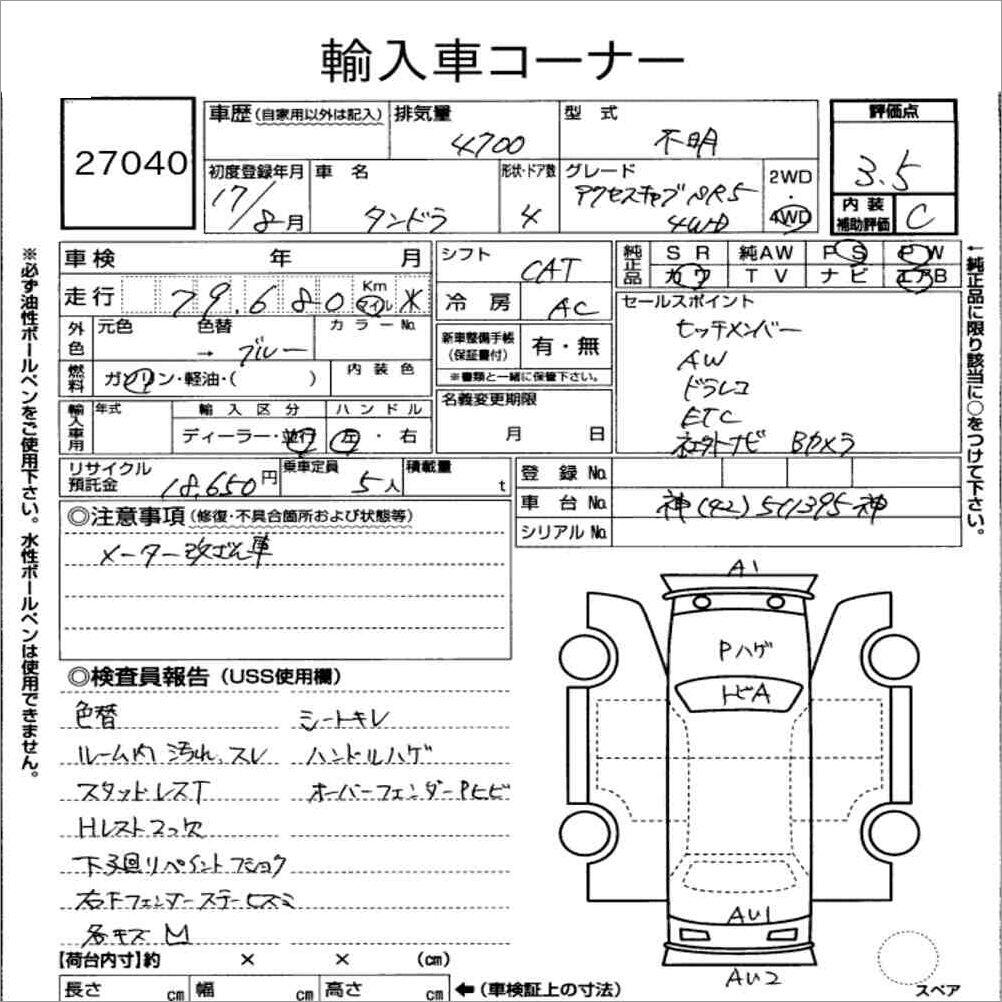 輸入車コーナー
27040
車歴(自家用以外は記入) 排気量 4700 型式 不明 評価点 3.5
初度登録年月 17/8月 車名 タンドラ 形状・ドア数 4 グレード アクセスキャブSR5 4WD 2WD・4WD 内装補助評価 C
車検 年 月 シフト CAT 純正品 SR 純AW PS PW
走行 79.680 Km マイル ※ 冷房 AC カワ TV ナビ エアB
外色 元色 色替 → ブルー カラーNo. 新車整備手帳(保証書付) 有・無
※書類と一緒に保管下さい。
燃料 ガソリン・軽油・( ) 内装色
セールスポイント
ヒッチメンバー
AW
ドラレコ
ETC
社外ナビ Bカメラ
輸入車用 年式 輸入区分 ハンドル 名義変更期限
ディーラー・並行 左・右 月 日
リサイクル預託金 18,650円 乗車定員 5人 積載量 t 登録No.
車台No. 神(42)511395神
シリアルNo.
◎注意事項(修復・不具合箇所および状態等)
メーター改ざん車
◎検査員報告(USS使用欄)
色替 シートキレ
ルーム内汚れ、スレ ハンドルハゲ
スタッドレスT オーバーフェンダーPヒビ
Hレストフタ欠
下廻リペイントフショク
右Fフェンダーステーヒズミ
各キズ凹
A1
Pハゲ
トビA
AU1
AU2
スペア
【荷台内寸】約 × × (cm)
長さ cm 幅 cm 高さ cm ←(車検証上の寸法)
※必ず油性ボールペンをご使用下さい。水性ボールペンは使用できません。
←純正品に限り該当に○をつけて下さい。